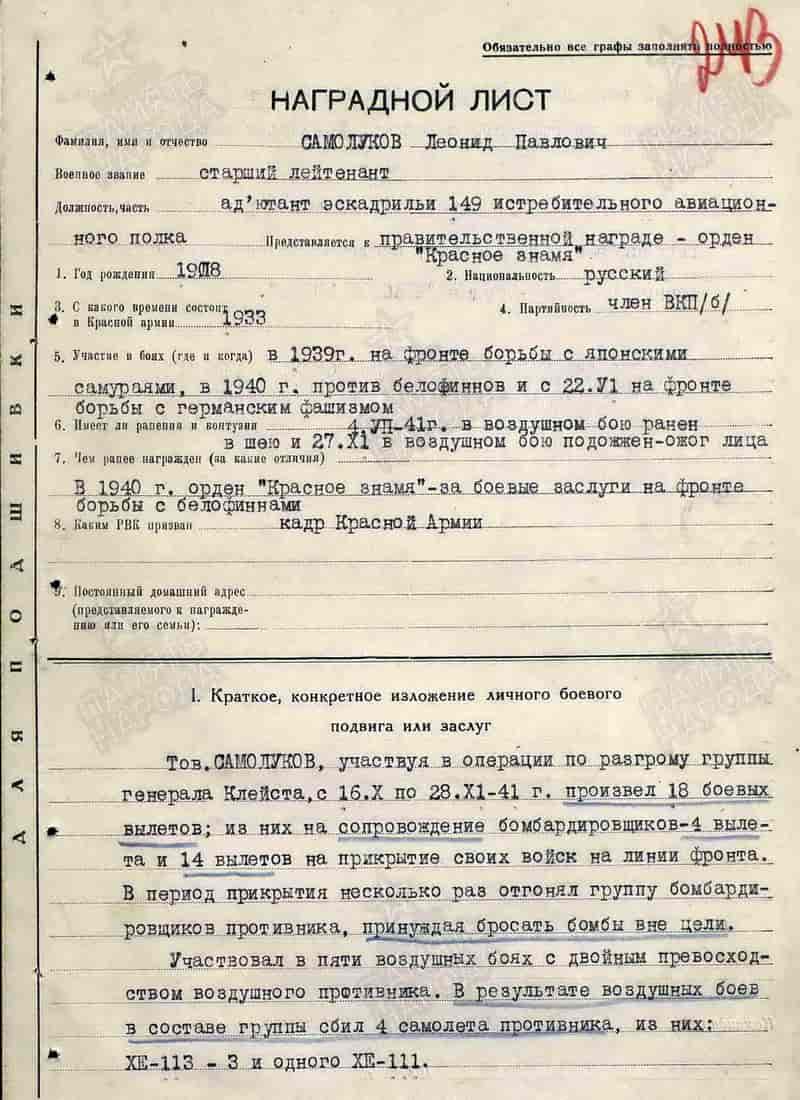 Обязательно все графы заполнять полностью
НАГРАДНОЙ ЛИСТ
Фамилия, имя и отчество САМОЛУКОВ Леонид Павлович
Военное звание старший лейтенант
Должность, часть ад'ютант эскадрильи 149 истребительного авиацион-
ного полка Представляется к правительственной награде - орден
"Красное знамя".
1. Год рождения 1908 2. Национальность русский
3. С какого времени состоит
в Красной армии 1933 4. Партийность член ВКП/б/
5. Участие в боях (где и когда) в 1939г. на фронте борьбы с японскими
самураями, в 1940 г. против белофиннов и с 22.У1 на фронте
борьбы с германским фашизмом
6. Имеет ли ранения и контузии 4.УП-41г. в воздушном бою ранен
в шею и 27.Х1 в воздушном бою подожжен-ожог лица
7. Чем ранее награжден (за какие отличия)
В 1940 г. орден "Красное знамя"-за боевые заслуги на фронте
борьбы с белофиннами
8. Каким РВК призван кадр Красной Армии
9. Постоянный домашний адрес
(представляемого к награжде-
нию или его семьи):
1. Краткое, конкретное изложение личного боевого
подвига или заслуг
Тов. САМОЛУКОВ, участвуя в операции по разгрому группы
генерала Клейста, с 16.Х по 28.Х1-41 г. произвел 18 боевых
вылетов; из них на сопровождение бомбардировщиков-4 выле-
та и 14 вылетов на прикрытие своих войск на линии фронта.
В период прикрытия несколько раз отгонял группу бомбарди-
ровщиков противника, принуждая бросать бомбы вне цели.
Участвовал в пяти воздушных боях с двойным превосход-
ством воздушного противника. В результате воздушных боев
в составе группы сбил 4 самолета противника, из них:
ХЕ-113 - 3 и одного ХЕ-111.
ДЛЯ ПОДШИВКИ
ПАМЯТЬ НАРОДА